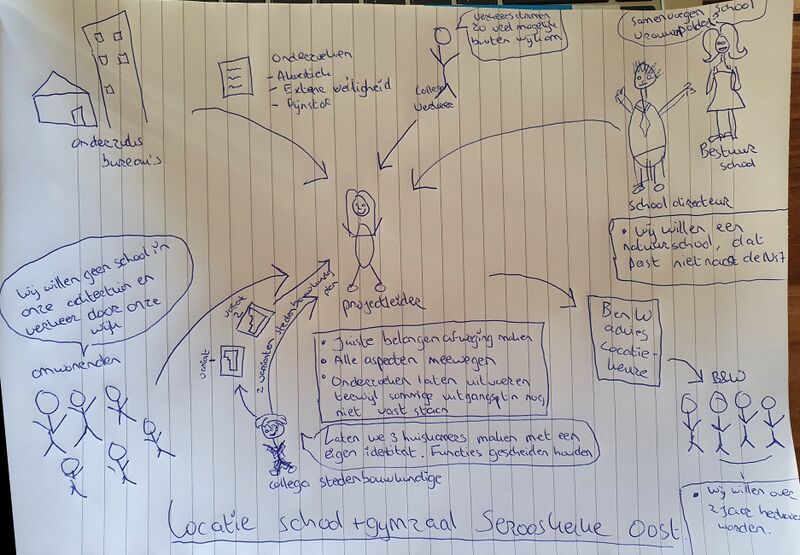 onderzoeks
bureau's
Onderzoeken
- Akoestiek
- Externe veiligheid
- Fijnstof
verkeersstromen
zo veel mogelijk
buiten wijk om
College
Verkeer
Samenvoegen School
Vrouwenpolder
Bestuur
school
schooldirecteur
• Wij willen een
natuurschool, dat
past niet naast de N57
Wij willen geen school in
onze achtertuin en
verkeer door onze
wijk
omwonenden
variant
variant
2
2 varianten stedenbouwkundig
plan
projectleider
• Juiste belangenafweging maken
• Alle aspecten meewegen
• Onderzoeken laten uitvoeren
terwijl sommige uitgangsptn nog
niet vast staan
Laten we 3 huiskamers maken met een
eigen identiteit. Functies gescheiden houden
collega stedenbouwkundige
B en W
advies
Locatie-
keuze
B&W
• Wij willen over
2 jaar herkozen
worden.
Locatie school + gymzaal Serooskerke Oost.